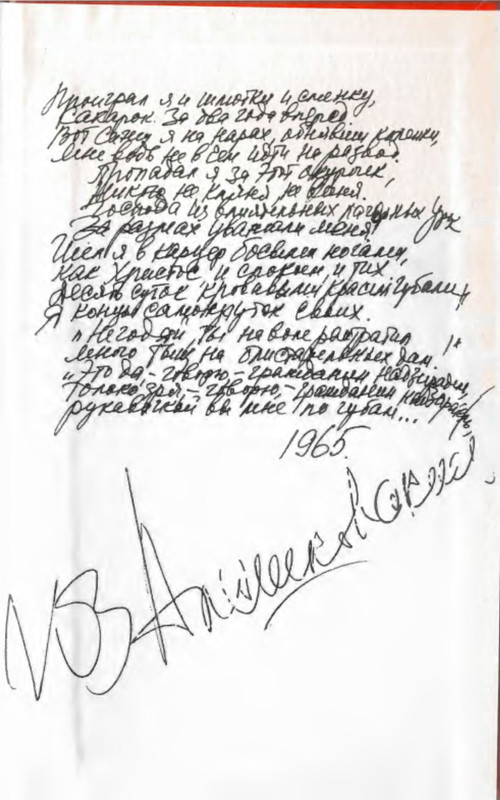 Проиграл я и шмотки и сменку,
Сахарок за два года вперед.
Вот сижу я на нарах, обнявши коленки,
Мне ведь не в чем идти на развод.
Пропадал я за этот окурок,
Никого не кляня не виня.
Господа из влиятельных лагерных урк
За размах уважали меня.
Шел я в карцер босыми ногами,
как Христос и спокоен и тих,
Десять суток кровавыми красил губами
Я концы самокруток своих.
"Негодяй, ты на воле растратил
много тыщ на блистательных дам!"
"Это да,- говорю,- гражданин надзиратель,
только зря,- говорю,- гражданин надзиратель,
рукавичкой вы мне по губам...
1965.
Юз Алешковский